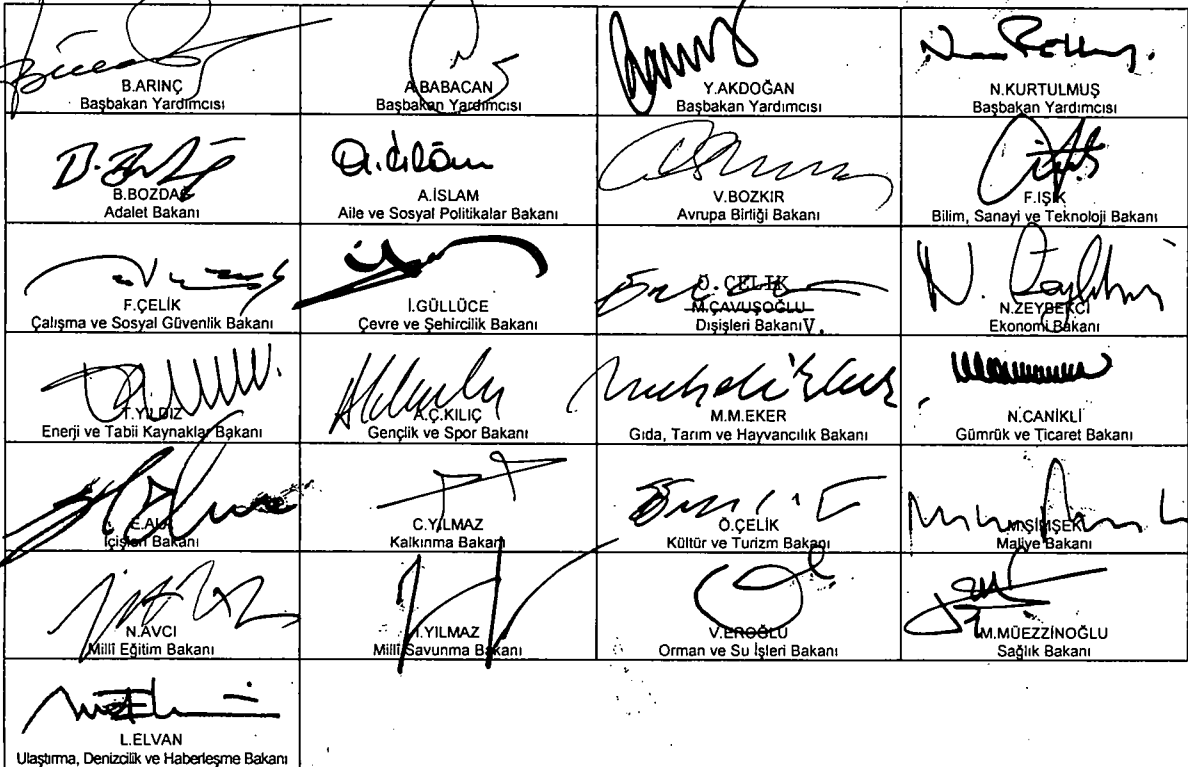 B.ARINÇ
Başbakan Yardımcısı
A.BABACAN
Başbakan Yardımcısı
Y.AKDOĞAN
Başbakan Yardımcısı
N.KURTULMUŞ
Başbakan Yardımcısı
B.BOZDAĞ
Adalet Bakanı
A.İSLAM
Aile ve Sosyal Politikalar Bakanı
V.BOZKIR
Avrupa Birliği Bakanı
F.IŞIK
Bilim, Sanayi ve Teknoloji Bakanı
F.ÇELİK
Çalışma ve Sosyal Güvenlik Bakanı
İ.GÜLLÜCE
Çevre ve Şehircilik Bakanı
Ö. ÇELİK
M.ÇAVUŞOĞLU
Dışişleri Bakanı V.
N.ZEYBEKCİ
Ekonomi Bakanı
T.YILDIZ
Enerji ve Tabii Kaynaklar Bakanı
A.Ç.KILIÇ
Gençlik ve Spor Bakanı
M.M.EKER
Gıda, Tarım ve Hayvancılık Bakanı
N.CANİKLİ
Gümrük ve Ticaret Bakanı
E.ALA
İçişleri Bakanı
C.YILMAZ
Kalkınma Bakanı
Ö.ÇELİK
Kültür ve Turizm Bakanı
M.ŞİMŞEK
Maliye Bakanı
N.AVCI
Millî Eğitim Bakanı
İ.YILMAZ
Millî Savunma Bakanı
V.EROĞLU
Orman ve Su İşleri Bakanı
M.MÜEZZİNOĞLU
Sağlık Bakanı
L.ELVAN
Ulaştırma, Denizcilik ve Haberleşme Bakanı